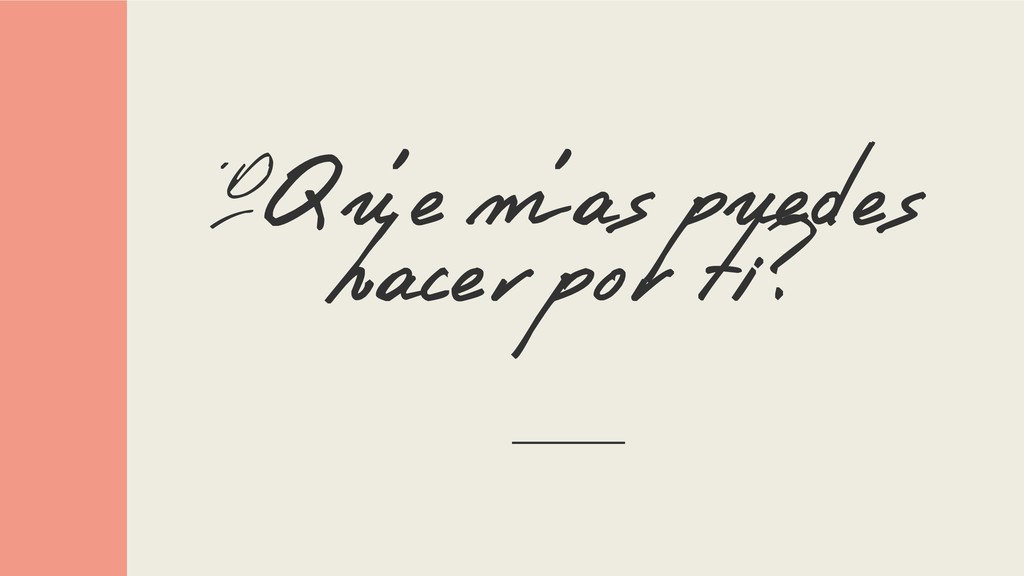 ¿Qué más puedes
hacer por ti?